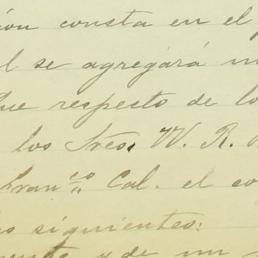 ión consta en el
l se agregará
ue respecto de lo
los Sres. W. R.
Fran^co Cal. el co
s siguientes:
mente y de un